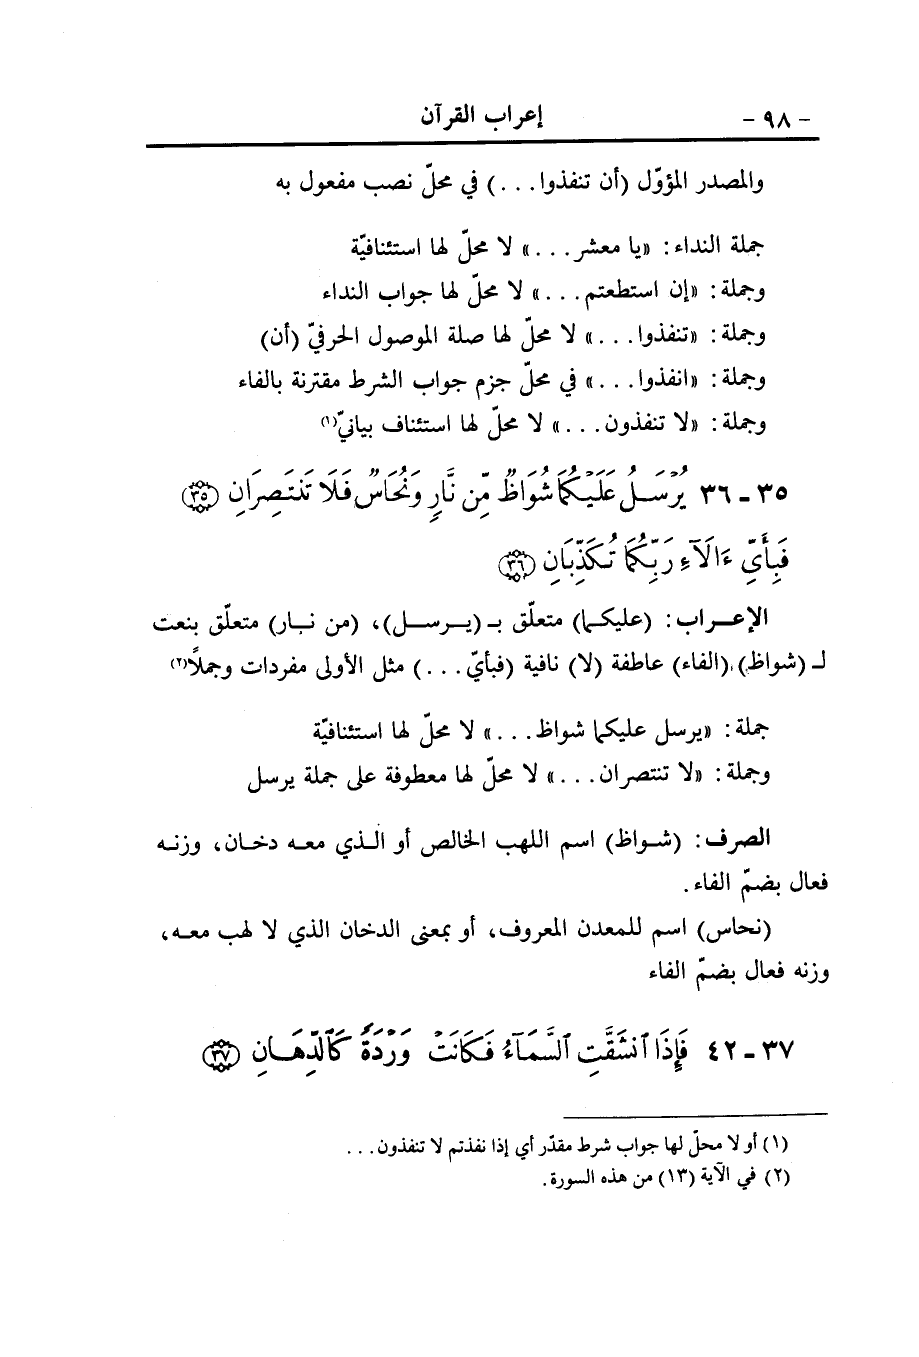 - ٩٨ - إعراب القرآن
والمصدر المؤوّل (أن تنفذوا...) في محلّ نصب مفعول به
جملة النداء: «يا معشر...» لا محلّ لها استئنافيّة
وجملة: «إن استطعتم...» لا محلّ لها جواب النداء
وجملة: «تنفذوا...» لا محلّ لها صلة الموصول الحرفيّ (أن)
وجملة: «انفذوا...» في محلّ جزم جواب الشرط مقترنة بالفاء
وجملة: «لا تنفذون...» لا محلّ لها استئناف بيانيّ(١)
٣٥ - ٣٦ يُرْسَلُ عَلَيْكُمَا شُوَاظٌ مِّن نَّارٍ وَنُحَاسٌ فَلَا تَنتَصِرَانِ (٣٥)
فَبِأَيِّ ءَالَآءِ رَبِّكُمَا تُكَذِّبَانِ (٣٦)
الإعراب: (عليكما) متعلّق بـ (يرسل)، (من نار) متعلّق بنعت
لـ (شواظ)، (الفاء) عاطفة (لا) نافية (فبأيّ...) مثل الأولى مفردات وجملاً(٢)
جملة: «يرسل عليكما شواظ...» لا محلّ لها استئنافيّة
وجملة: «لا تنتصران...» لا محلّ لها معطوفة على جملة يرسل
الصرف: (شواظ) اسم اللهب الخالص أو الذي معه دخان، وزنه
فعال بضمّ الفاء.
(نحاس) اسم للمعدن المعروف، أو بمعنى الدخان الذي لا لهب معه،
وزنه فعال بضمّ الفاء
٣٧ - ٤٢ فَإِذَا ٱنشَقَّتِ ٱلسَّمَآءُ فَكَانَتْ وَرْدَةً كَٱلدِّهَانِ (٣٧)
(١) أو لا محلّ لها جواب شرط مقدّر أي إذا نفذتم لا تنفذون...
(٢) في الآية (١٣) من هذه السورة.